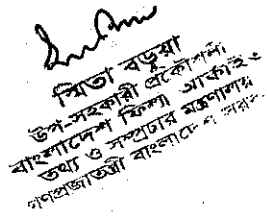 স্মিতা বড়ুয়া
উপ-সহকারী প্রকৌশলী
বাংলাদেশ ফিল্ম আর্কাইভ
তথ্য ও সম্প্রচার মন্ত্রণালয়
গণপ্রজাতন্ত্রী বাংলাদেশ সরকার